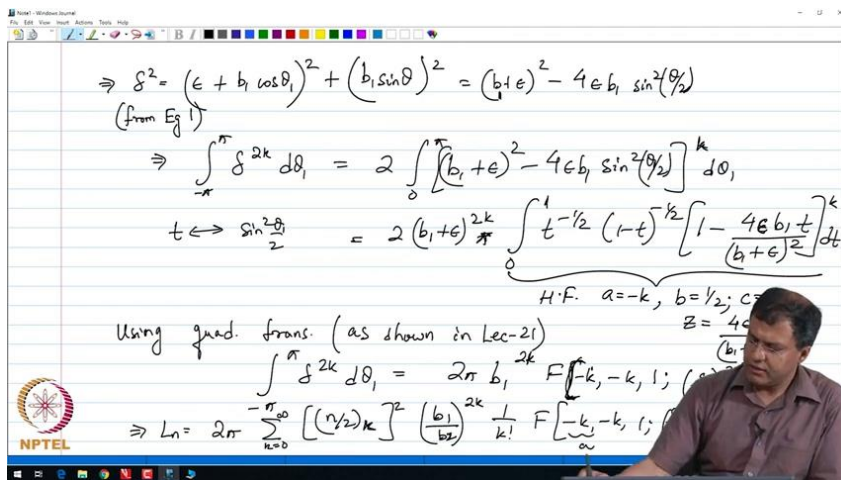 Note1 - Windows Journal
File Edit View Insert Actions Tools Help
⇒ δ² = (ϵ + b₁ cosθ₁)² + (b₁ sinθ)² = (b₁+ϵ)² - 4ϵb₁ sin²(θ/2)
(from Eq 1)
⇒ ∫_{-π}^{π} δ^{2k} dθ₁ = 2 ∫_0^π [(b₁+ϵ)² - 4ϵb₁ sin²(θ/2)]^k dθ₁
t ↔ sin² θ₁/2 = 2 (b₁+ϵ)^{2k} ∫_0^1 t^{-1/2} (1-t)^{-1/2} [1 - 4ϵb₁t/(b₁+ϵ)²]^k dt
H.F. a=-k, b=1/2; c=
z = 4ϵ
(b₁
Using quad. trans. (as shown in Lec-21)
∫_{-π}^{π} δ^{2k} dθ₁ = 2π b₁^{2k} F[-k, -k, 1; (
⇒ Lₙ = 2π ∑_{k=0}^∞ [(n/2)_k]² (b₁/b₂)^{2k} 1/k! F[-k, -k, 1; (
a
NPTEL